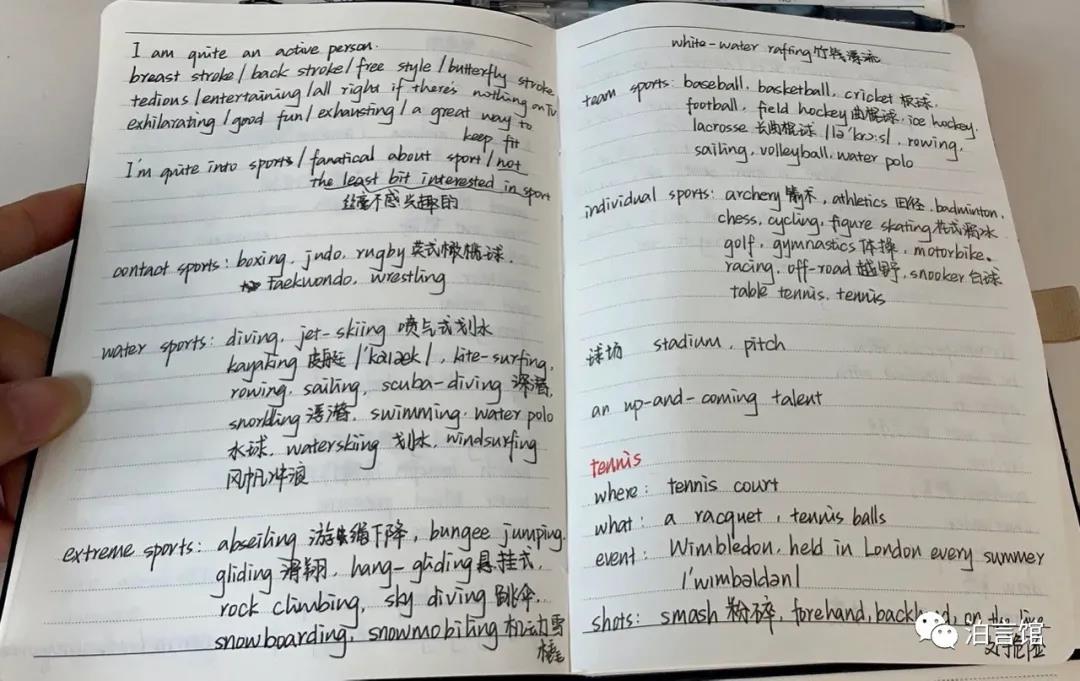 I am quite an active person.
breast stroke / back stroke / free style / butterfly stroke
tedious / entertaining / all right if there's nothing on TV
exhilarating / good fun / exhausting / a great way to
keep fit
I'm quite into sports / fanatical about sport / not
the least bit interested in sport
丝毫不感兴趣的
contact sports: boxing, judo, rugby 英式橄榄球,
taekwondo, wrestling
water sports: diving, jet-skiing 喷气式划水
kayaking 皮艇 /'kaɪæk/, kite-surfing,
rowing, sailing, scuba-diving 深潜,
snorkling 浮潜, swimming, water polo
水球, waterskiing 划水, windsurfing
风帆冲浪
extreme sports: abseiling 游绳下降, bungee jumping,
gliding 滑翔, hang-gliding 悬挂式,
rock climbing, sky diving 跳伞,
snowboarding, snowmobiling 机动雪
橇
white-water rafting 竹筏漂流
team sports: baseball, basketball, cricket 板球,
football, field hockey 曲棍球, ice hockey,
lacrosse 长曲棍球 /lə'krɔ:s/, rowing,
sailing, volleyball, water polo
individual sports: archery 箭术, athletics 田径, badminton,
chess, cycling, figure skating 花式溜冰
golf, gymnastics 体操, motorbike
racing, off-road 越野, snooker 台球
table tennis, tennis
球场 stadium, pitch
an up-and-coming talent
tennis
where: tennis court
what: a racquet, tennis balls
event: Wimbledon, held in London every summer
/'wimbəldən/
shots: smash 粉碎, forehand, backhand, on the line
泊言馆